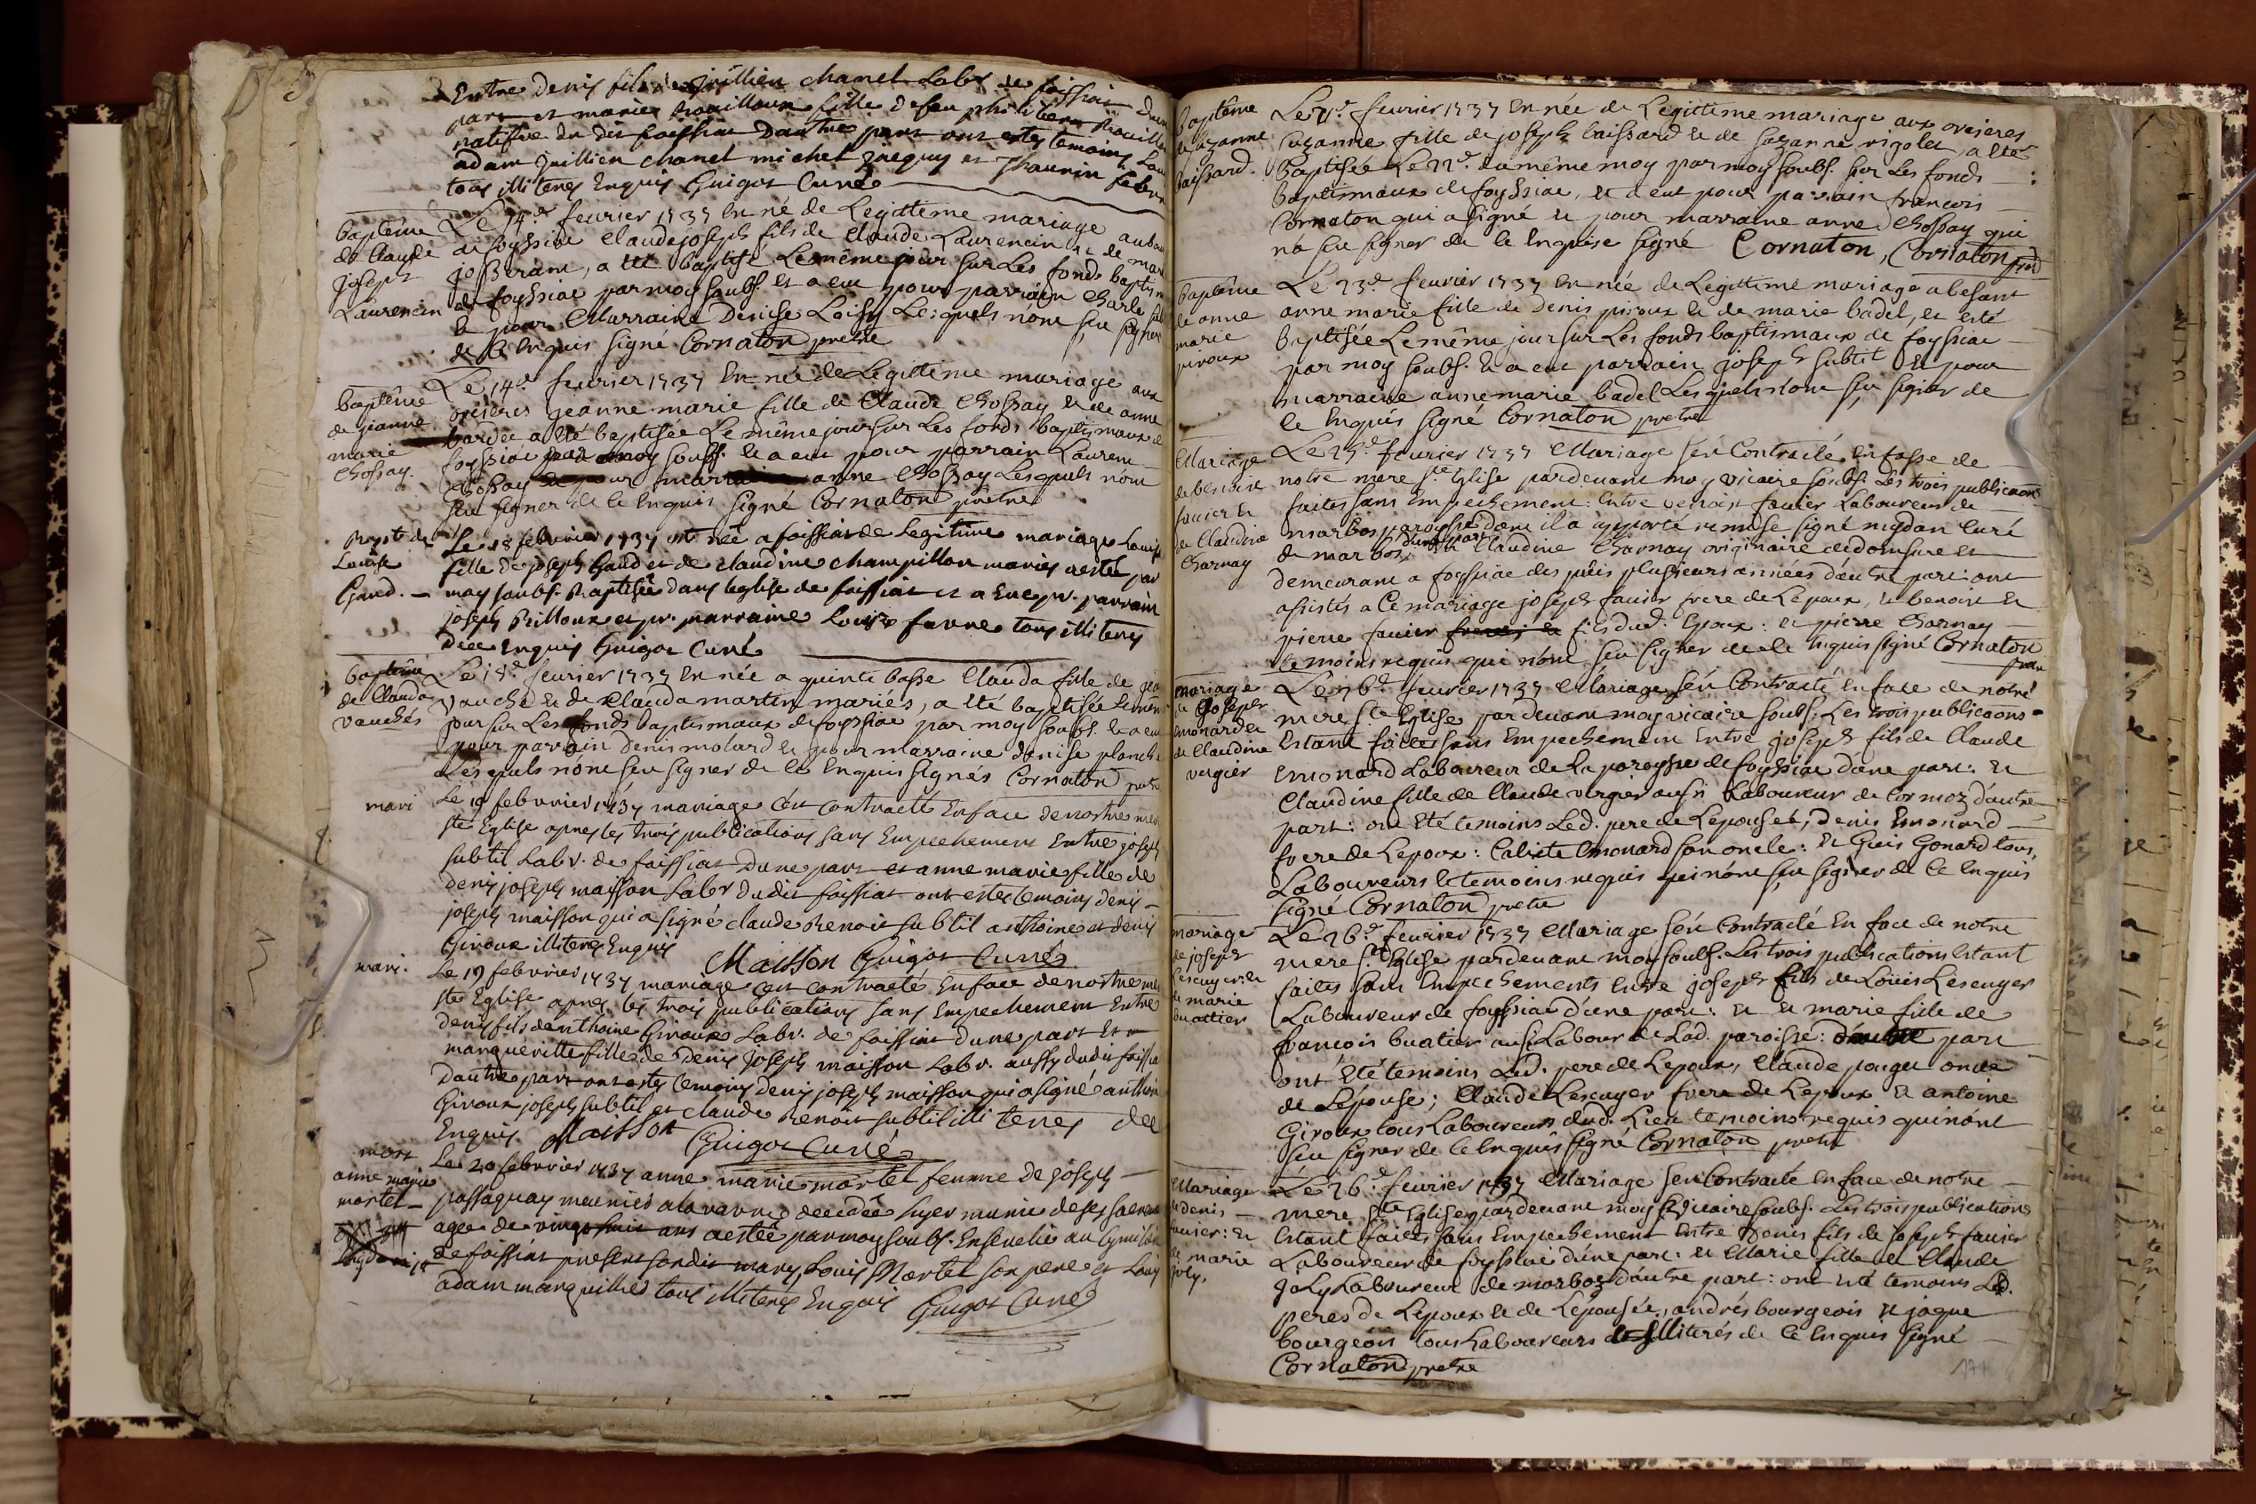 Entre denis fils de Juillien chanel Labr de foissiat dune
part et marie trouilloux fille defeu philibert
natifve du dit foissiat dautre part ont estes temoins
adam Juillien chanel michel Jacquy et Thaurin febvre
tous illiterés Enquis Guigot Curé
baptême
de Claude
joseph
Laurencin
Le 14e fevrier 1737 est né de Legitteme mariage
de foyssiac Claude joseph fils de Claude Laurencin et de
josseram, a eté baptisé Le même jour sur Les fonds
de foyssiac par moy soubs. et a eu pour parrain Charle
et pour Marraine Denise Loisy Lesquels n'ont seu signer
de ce Enquis signé Cornaton pretre
baptême
de jeanne
marie
Chossay.
Le 14e fevrier 1737 est née de Legitime mariage aux
orcieres jeanne marie fille de Claude Chossay et de anne
bardet a eté baptisée Le même jour sur Les fonds baptismaux de
foyssiac par moy soubs. et a eu pour parrain Laurent
Chossay et pour marraine anne Chossay Lesquels n'ont
seu signer de ce Enquis signé Cornaton pretre
Bapt. de
Louise
Gaud.
Le 18 febvrier 1737 est née a foissiat de Legitime mariage Louise
fille de joseph Gaud et de claudine champillon mariés aestée par
moy soubs. Baptisée dans leglise de foissiat et a Eu pr. parrain
joseph Billoux et pr. marraine Louise favre tous illiterés
dece enquis Guigot Curé
baptême
de Clauda
vauchés
Le 18e fevrier 1737 est née a quinte basse Clauda fille de
vauché et de Clauda martin mariés, a eté baptisée Le même
jour sur Les fonds baptismaux de foyssiac par moy soubs. et a eu
pour parrain denis molard et pour marraine denise planche
Lesquels n'ont seu signer de ce Enquis signés Cornaton pretre
mari
Le 19 febvrier 1737 mariage cest contracté En face de nostre mere
ste Eglise apres les trois publications sans Empechement Entre joseph
subtil Labr. de foissiat dune part et anne marie fille de
denis joseph maisson Labr dudit foissiat ont estes temoins denis
joseph maisson qui a signé claude Benoit subtil anthoine et denis
Giroux illiterés Enquis
Maisson Guigot Curé
mari.
Le 19 febvrier 1737 mariage cest contracté En face de nostre mere
ste Eglise apres les trois publications sans Empechement Entre
denis fils danthoine Giroux Labr. de foissiat dune part et
marguerite fille de Denis joseph maisson Labr. aussy dudit foissia
dautre part ont estes temoins denis joseph maisson qui a signé anthoin
Giroux joseph subtil et claude Benoit subtil illiterés dece
Enquis. Maisson Guigot Curé
mort
anne marie
mortel
Le 20 febvrier 1737 anne marie mortel femme de joseph
passaquay meunier alavavre decedée hyer munie de ses sacrem
agee de vingt huit ans aestée par moy soubs. Ensevelie au Cymitiere
de foissiat present sondit mary Louis Mortel son pere et Louis
adam marguillier tous illiterés Enquis Guigot Curé
baptême
de Suzanne
baissard.
Le 21e fevrier 1737 est née de Legitteme mariage aux orcieres
Suzanne fille de joseph baissard et de suzanne rigolet, a eté
Baptisée Le 22e du même moy par moy soubs. sur Les fonds
baptismaux de foyssiac, et a eut pour parrain francois
Cornaton qui a signé et pour marraine anne Chossay qui
na seu signer de ce Enquise signé Cornaton, Cornaton pretre
baptême
de anne
marie
piroux
Le 23e fevrier 1737 est née de Legitteme mariage a besant
anne marie fille de Denis piroux et de marie badel, et eté
Baptisée Le même jour sur Les fonds baptismaux de foyssiac
par moy soubs. et a eut parrain joseph subtil et pour
marraine anne marie badel Lesquels n'ont seu signer de
ce Enquis signé Cornaton pretre
Mariage
de benoist
favier et
de Claudine
Charnay
Le 25e fevrier 1737 Mariage s'est Contracté En fasse de
notre mere ste Eglise pardevant moy vicaire soubs. Les trois publicaons
faites sans Empechement: Entre benoist favier Laboureur de
marbos paroysse dont il a apporté remise signé nugdan Curé
de marbos, d'une part et Claudine Charnay originaire de domsure et
demeurant a foyssiac des puis plussieurs années d'autre part: ont
assistés a Ce mariage joseph favier frere de Lepoux, et benoist et
pierre favier freres et fils dud. Epoux: et pierre Charnay
temoins requis qui n'ont seu signer de ce Enquis signé Cornaton
pretre
mariage
de joseph
emonard et
de Claudine
vergier
Le 26e fevrier 1737 Mariage s'est Contracté En face de notre
mere ste Eglise pardevant moy vicaire soubs. Les trois publicaons
Estant faites sans Empechement Entre joseph fils de Claude
Emonard Laboureur de La paroysse de foyssiac d'une part: et
Claudine fille de Claude vergier aussi Laboureur de Cormoz d'autre
part: ont eté temoins Led. pere de Lepousée, denis Emonard
frere de Lepoux: Calixte emonard son oncle: et Gieis Gonard tous
Laboureurs et temoins requis qui n'ont seu signer de Ce Enquis
signé Cornaton pretre
mariage
de joseph
Lescuyer et
de marie
buattier
Le 26e fevrier 1737 Mariage s'est Contracté En face de notre
mere ste Eglise pardevant moy soubs. Les trois publications Estant
faites sans Empechements Entre joseph fils de Louis Lescuyer
Laboureur de foyssiac d'une part: et et marie fille de
francois buatier aussi Labour de Lad. paroisse: d'autre part
ont eté temoins Led. pere de Lepoux, Claude pauget oncle
de Lépouse; Claude Lescuyer frere de Lepoux et antoine
Giroux tous Laboureurs dud. Lieu temoins requis qui n'ont
seu signer de Ce Enquis signé Cornaton pretre
Mariage
de denis
favier: et
de marie
joly.
Le 26e fevrier 1737 Mariage s'est Contracté En face de notre
mere ste Eglise pardevant moy vicaire soubs. Les trois publications
Estant faites sans Empechement Entre Denis fils de joseph favier
Laboureur de foyssiac d'une part: et Marie fille de Claude
Joly Laboureur de marboz d'autre part: ont eté temoins Led.
peres de Lepoux et de Lepousée, andrés bourgeois et jaque
bourgeois tous Laboureurs et illiterés de Ce Enquis signé
Cornaton pretre